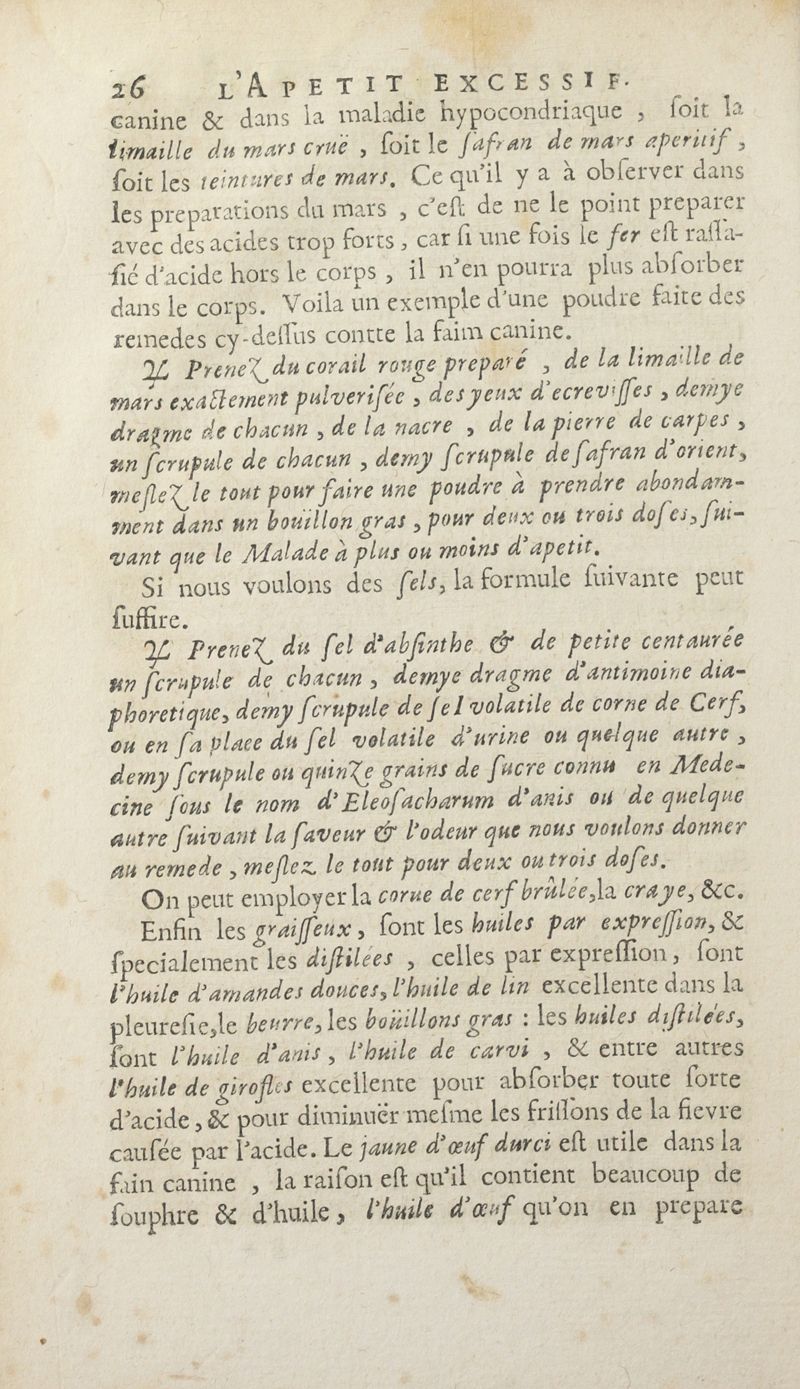 26 L'APETIT EXCESSIF.
canine & dans la maladie hypocondriaque , ſoit la
limaille du mars cruë , ſoit le ſafran de mars aperitif ,
ſoit les teintures de mars. Ce qu'il y a à obſerver dans
les preparations du mars , c'eſt de ne le point preparer
avec des acides trop forts , car ſi une fois le fer eſt raſſa-
ſié d'acide hors le corps , il n'en pourra plus abſorber
dans le corps. Voila un exemple d'une poudre faite des
remedes cy-deſſus contte la faim canine.
♃ Prenez du corail rouge preparé , de la limaille de
mars exactement pulveriſée , des yeux d'ecreviſſes , demye
dragme de chacun , de la nacre , de la pierre de carpes ,
un ſcrupule de chacun , demy ſcrupule de ſafran d'orient,
meſlez le tout pour faire une poudre à prendre abondam-
ment dans un boüillon gras , pour deux ou trois doſes, ſui-
vant que le Malade à plus ou moins d'apetit.
Si nous voulons des ſels, la formule ſuivante peut
ſuffire.
♃ Prenez du ſel d'abſinthe & de petite centaurée
un ſcrupule de chacun , demye dragme d'antimoine dia-
phoretique, demy ſcrupule de ſel volatile de corne de Cerf,
ou en ſa place du ſel volatile d'urine ou quelque autre ,
demy ſcrupule ou quinze grains de ſucre connu en Mede-
cine ſous le nom d'Eleoſacharum d'anis ou de quelque
autre ſuivant la ſaveur & l'odeur que nous voulons donner
au remede , meſlez le tout pour deux ou trois doſes.
On peut employer la corne de cerf brûlée,la craye, &c.
Enfin les graiſſeux , ſont les huiles par expreſſion, &
ſpecialement les diſtilées , celles par expreſſion , ſont
l'huile d'amandes douces, l'huile de lin excellente dans la
pleureſie,le beurre, les boüillons gras : les huiles diſtilées,
ſont l'huile d'anis , l'huile de carvi , & entre autres
l'huile de girofles excellente pour abſorber toute ſorte
d'acide , & pour diminuër meſme les friſſons de la fievre
cauſée par l'acide. Le jaune d'œuf durci eſt utile dans la
fain canine , la raiſon eſt qu'il contient beaucoup de
ſouphre & d'huile , l'huile d'œuf qu'on en prepare